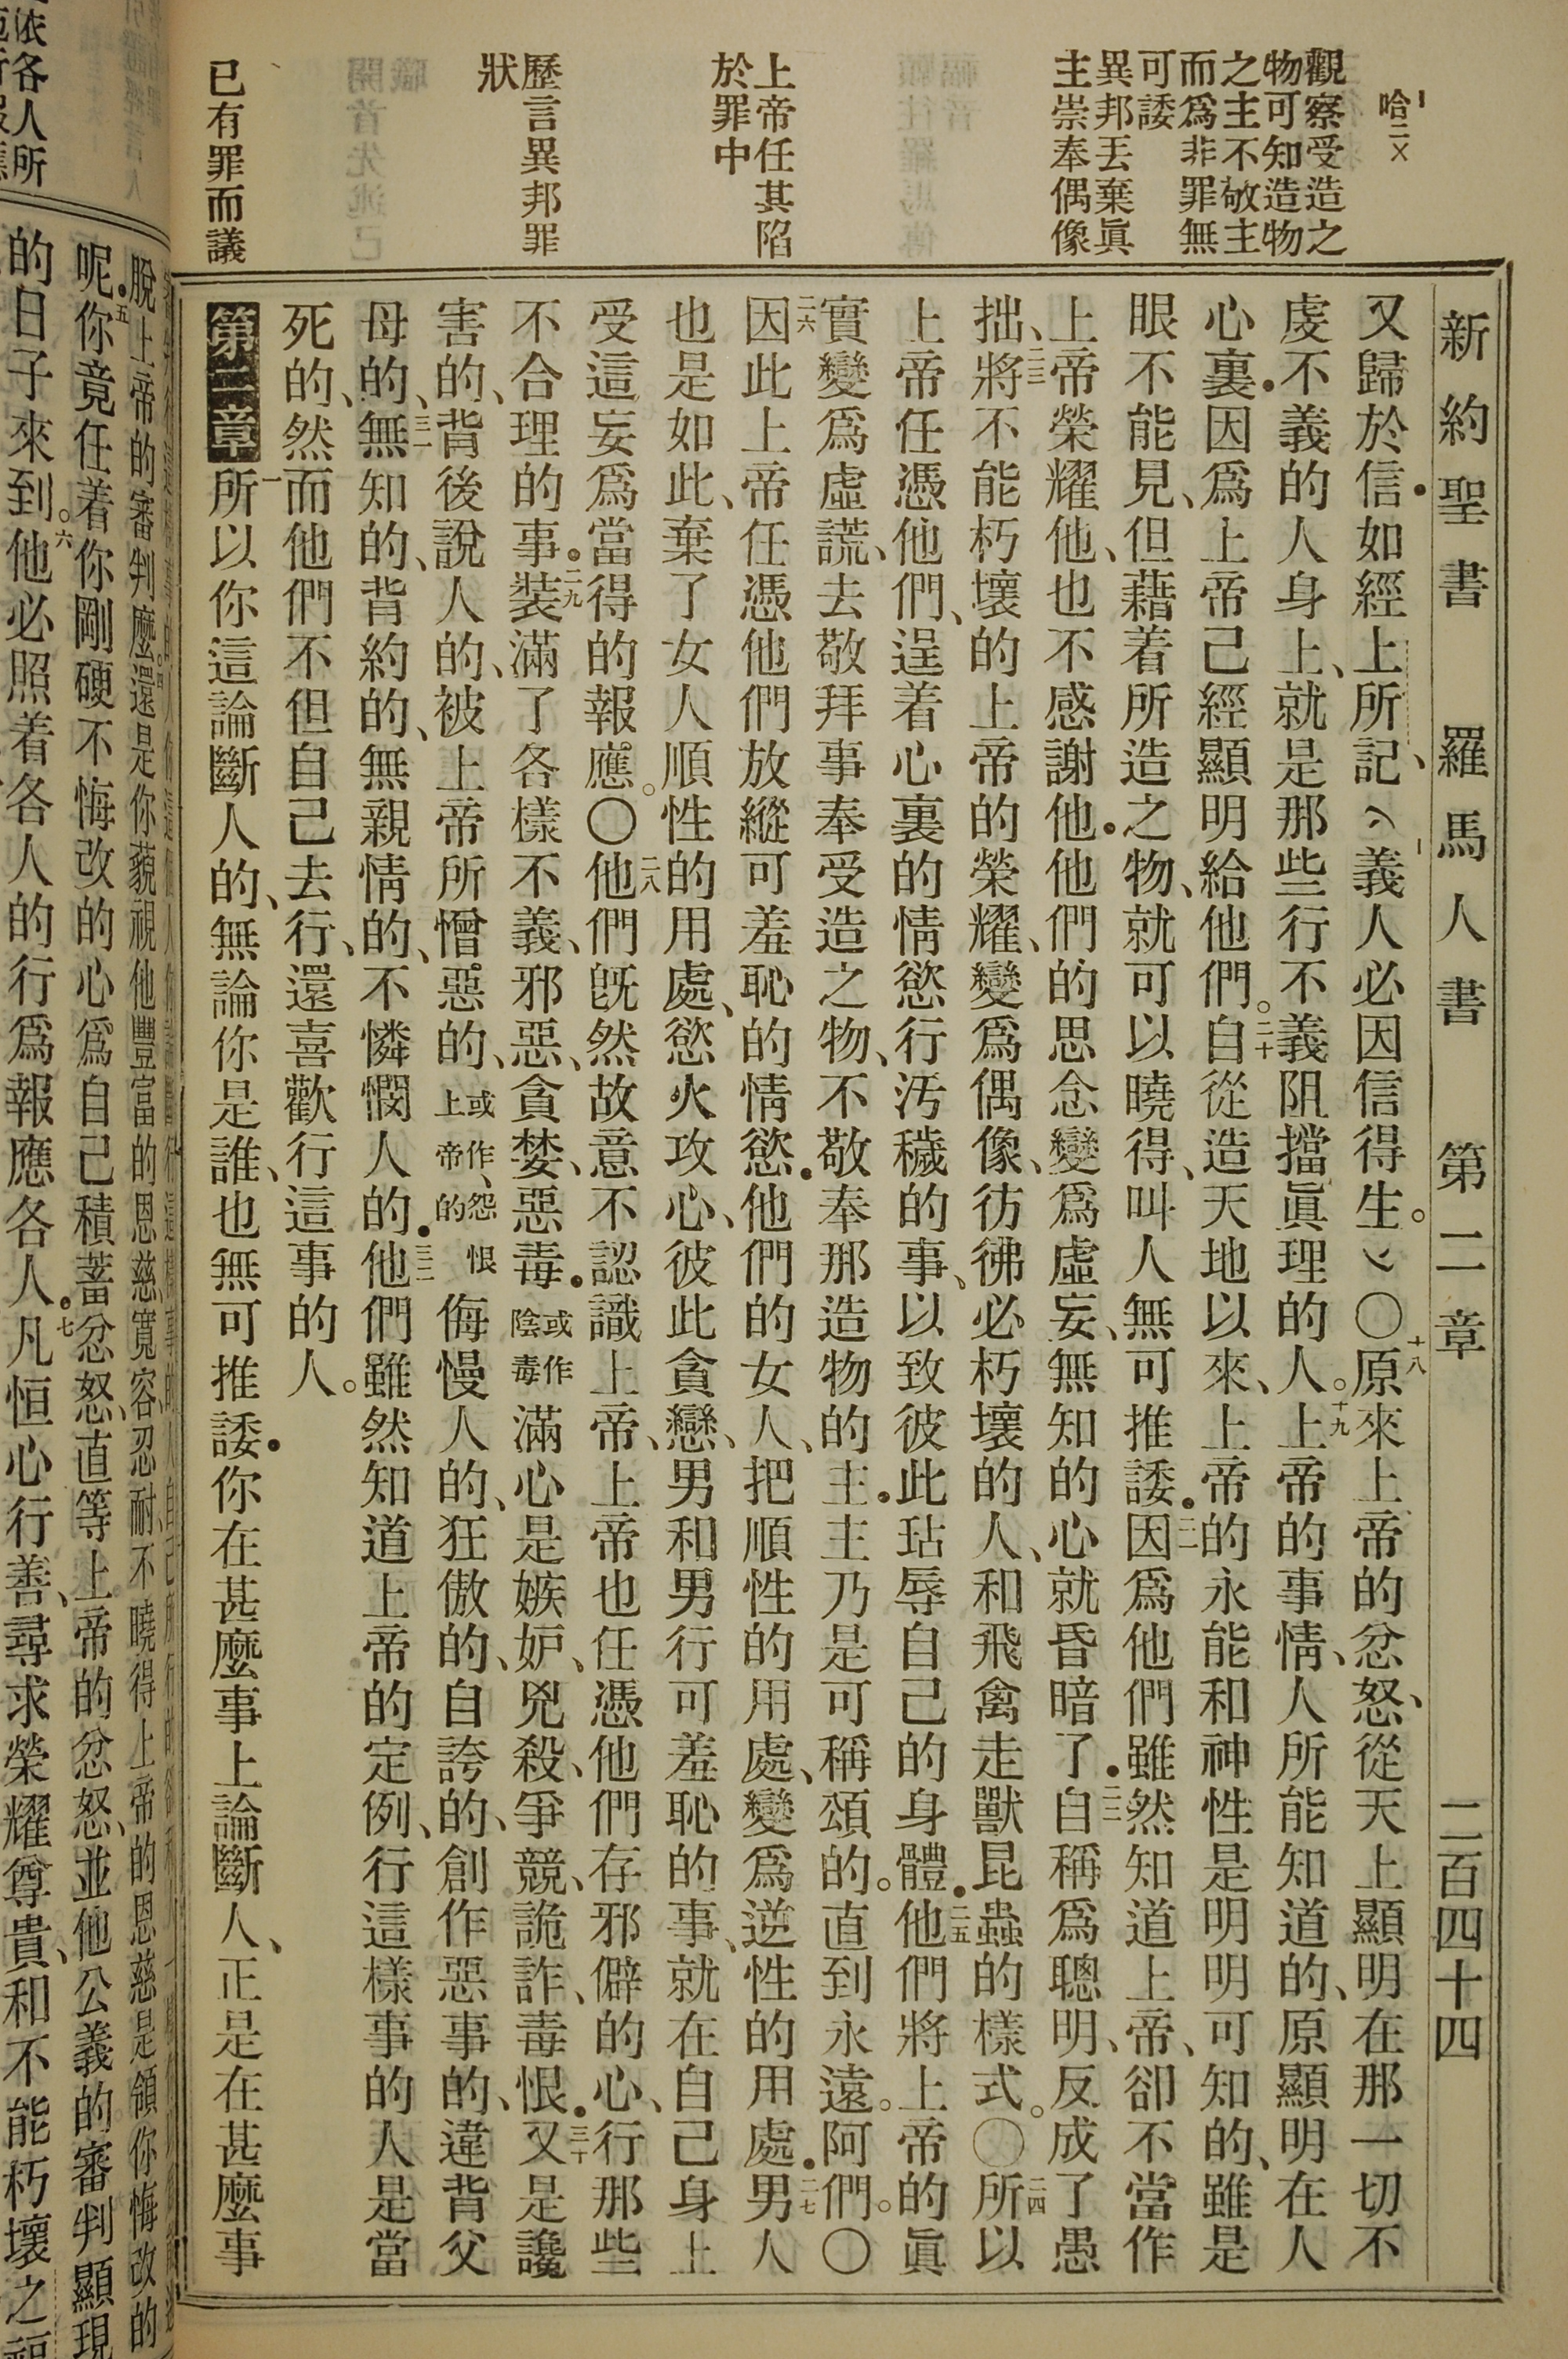 新約聖書 羅馬人書 第二章 二百四十四
哈二X
觀察受造之
物可知造物
之主不敬主
而爲非罪無
可諉
異邦丟棄眞
主崇奉偶像
上帝任其陷
於罪中
歷言異邦罪
狀
已有罪而議
又歸於信●如經上所記、(義人必因信得生。)〇十八原來上帝的忿怒、從天上顯明在那一切不
虔不義的人身上、就是那些行不義阻擋眞理的人。十九上帝的事情、人所能知道的、原顯明在人
心裏●因爲上帝已經顯明給他們。二十自從造天地以來、上帝的永能和神性是明明可知的、雖是
眼不能見、但藉着所造之物、就可以曉得、叫人無可推諉●二一因爲他們雖然知道上帝、卻不當作
上帝榮耀他、也不感謝他●他們的思念變爲虛妄、無知的心就昏暗了●二二自稱爲聰明、反成了愚
拙、二三將不能朽壞的上帝的榮耀、變爲偶像、彷彿必朽壞的人、和飛禽走獸昆蟲的樣式。〇二四所以
上帝任憑他們、逞着心裏的情慾行汚穢的事、以致彼此玷辱自己的身體●二五他們將上帝的眞
實變爲虛謊、去敬拜事奉受造之物、不敬奉那造物的主●主乃是可稱頌的。直到永遠。阿們。〇
二六因此上帝任憑他們放縱可羞恥的情慾●他們的女人、把順性的用處、變爲逆性的用處●二七男人
也是如此、棄了女人順性的用處、慾火攻心、彼此貪戀、男和男行可羞恥的事、就在自己身上
受這妄爲當得的報應。〇二八他們旣然故意不認識上帝、上帝也任憑他們存邪僻的心、行那些
不合理的事●二九裝滿了各樣不義、邪惡、貪婪、惡毒●或作陰毒滿心是嫉妒、兇殺、爭競、詭詐、毒恨●三十又是讒
害的、背後說人的、被上帝所憎惡的、或作、怨恨上帝的侮慢人的、狂傲的、自誇的、創作惡事的、違背父
母的、三一無知的、背約的、無親情的、不憐憫人的●三二他們雖然知道上帝的定例、行這樣事的人是當
死的、然而他們不但自己去行、還喜歡行這事的人。
第二章 一所以你這論斷人的、無論你是誰、也無可推諉●你在甚麼事上論斷人、正是在甚麼事
脫上帝的審判麼。還是你藐視他豐富的恩慈、寬容、忍耐、不曉得上帝的恩慈是領你悔改的
呢●五你竟任着你剛硬不悔改的心、爲自己積蓄忿怒、直等上帝的忿怒、並他公義的審判顯現
的日子來到。六他必照着各人的行爲報應各人●七凡恒心行善、尋求榮耀尊貴、和不能朽壞之福
依各人所